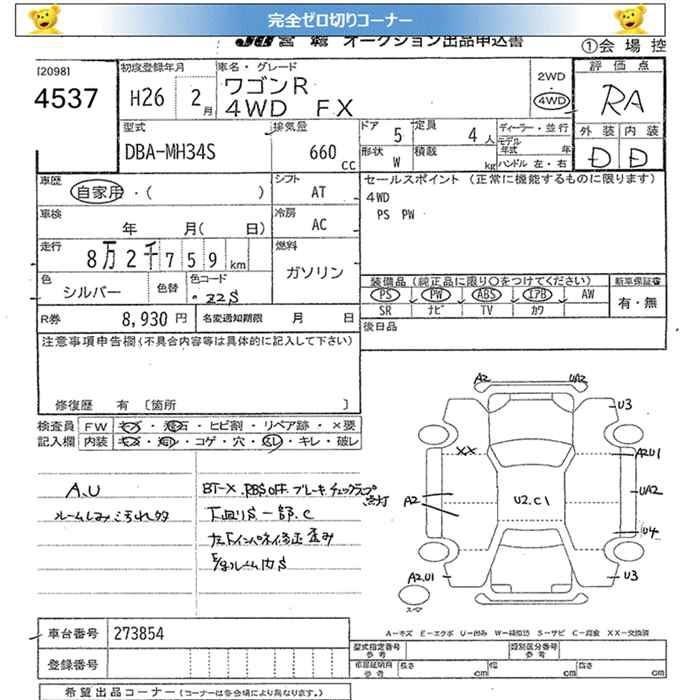 完全ゼロ切りコーナー
JU 宮城 オークション出品申込書
①会場控
[2098]
4537
初度登録年月
H26 2月
車名・グレード
ワゴンR
4WD FX
2WD
4WD
評価点
RA
外装 内装
D D
型式
DBA-MH34S
排気量
660 cc
ドア 5
定員 4人
形状 W
積載 kg
ディーラー・並行
モデル年式 年
ハンドル 左・右
車歴
自家用・( )
シフト
AT
セールスポイント (正常に機能するものに限ります)
4WD
PS PW
車検
年 月( 日)
冷房
AC
走行
8万2千759 km
燃料
ガソリン
色
シルバー
色替
色コード
Z2S
装備品(純正品に限り○をつけてください)
PS PW ABS エアB AW
SR ナビ TV カワ
新車保証書
有・無
R券
8,930 円
名変通知期限 月 日
後日品
注意事項申告欄(不具合内容等は具体的に記入して下さい)
修復歴 有 〔箇所 〕
検査員
記入欄
FW キズ・飛石・ヒビ割・リペア跡・×要
内装 キズ・コゲ・穴・キレ・破レ
A.U
ルームしみ汚れ多
BT-X ABS OFF. ブレーキ.チェックランプ
点灯
下廻りS一部.C
A2
UA2
U3
XX
A2U1
A2
UA2
U2.C1
U4
A2.U1
U3
スマ
A-キズ E-エクボ U-凹み W-補修跡 S-サビ C-腐食 XX-交換済
車台番号
273854
登録番号
型式指定番号
参考
類別区分番号
参考
長さ cm
幅 cm
高さ cm
希望出品コーナー (コーナーは各会場により異なります。)